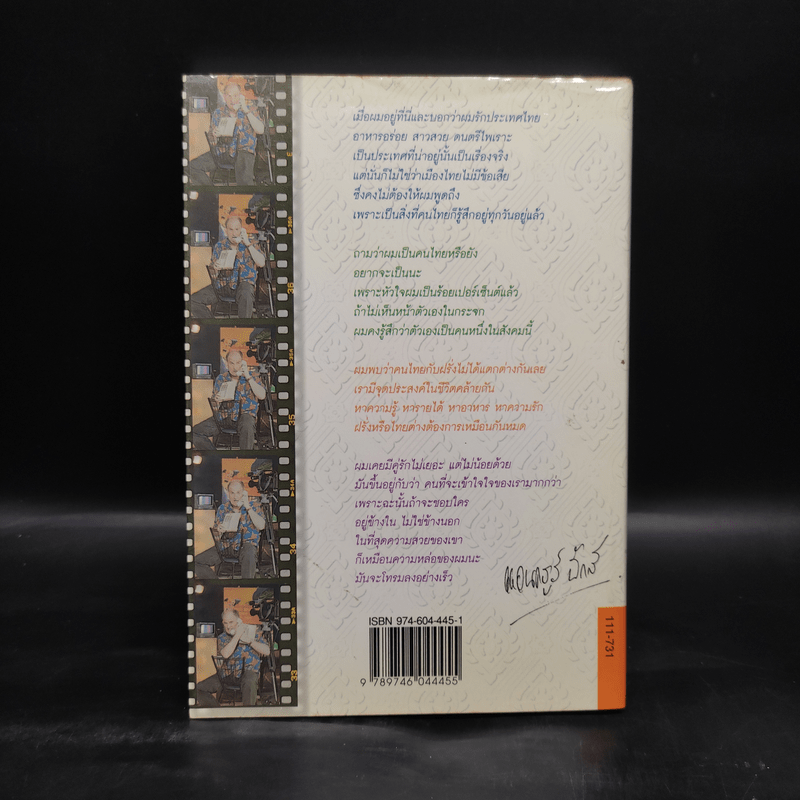 เมื่อผมอยู่ที่นี่และบอกว่าผมรักประเทศไทย
อาหารอร่อย สาวสวย ดนตรีไพเราะ
เป็นประเทศที่น่าอยู่นั้นเป็นเรื่องจริง
แต่นั่นก็ไม่ใช่ว่าเมืองไทยไม่มีข้อเสีย
ซึ่งคงไม่ต้องให้ผมพูดถึง
เพราะเป็นสิ่งที่คนไทยก็รู้สึกอยู่ทุกวันอยู่แล้ว
ถามว่าผมเป็นคนไทยหรือยัง
อยากจะเป็นนะ
เพราะหัวใจผมเป็นร้อยเปอร์เซ็นต์แล้ว
ถ้าไม่เห็นหน้าตัวเองในกระจก
ผมคงรู้สึกว่าตัวเองเป็นคนหนึ่งในสังคมนี้
ผมพบว่าคนไทยกับฝรั่งไม่ได้แตกต่างกันเลย
เรามีจุดประสงค์ในชีวิตคล้ายกัน
หาความรู้ หารายได้ หาอาหาร หาความรัก
ฝรั่งหรือไทยต่างต้องการเหมือนกันหมด
ผมเคยมีคู่รักไม่เยอะ แต่ไม่น้อยด้วย
มันขึ้นอยู่กับว่า คนที่จะเข้าใจใจของเรามากกว่า
เพราะฉะนั้นถ้าจะชอบใคร
อยู่ข้างใน ไม่ใช่ข้างนอก
ในที่สุดความสวยของเขา
ก็เหมือนความหล่อของผมนะ
มันจะโทรมลงอย่างเร็ว
ISBN 974-604-445-1
9 789746 044455
111-731
36
35
34
33